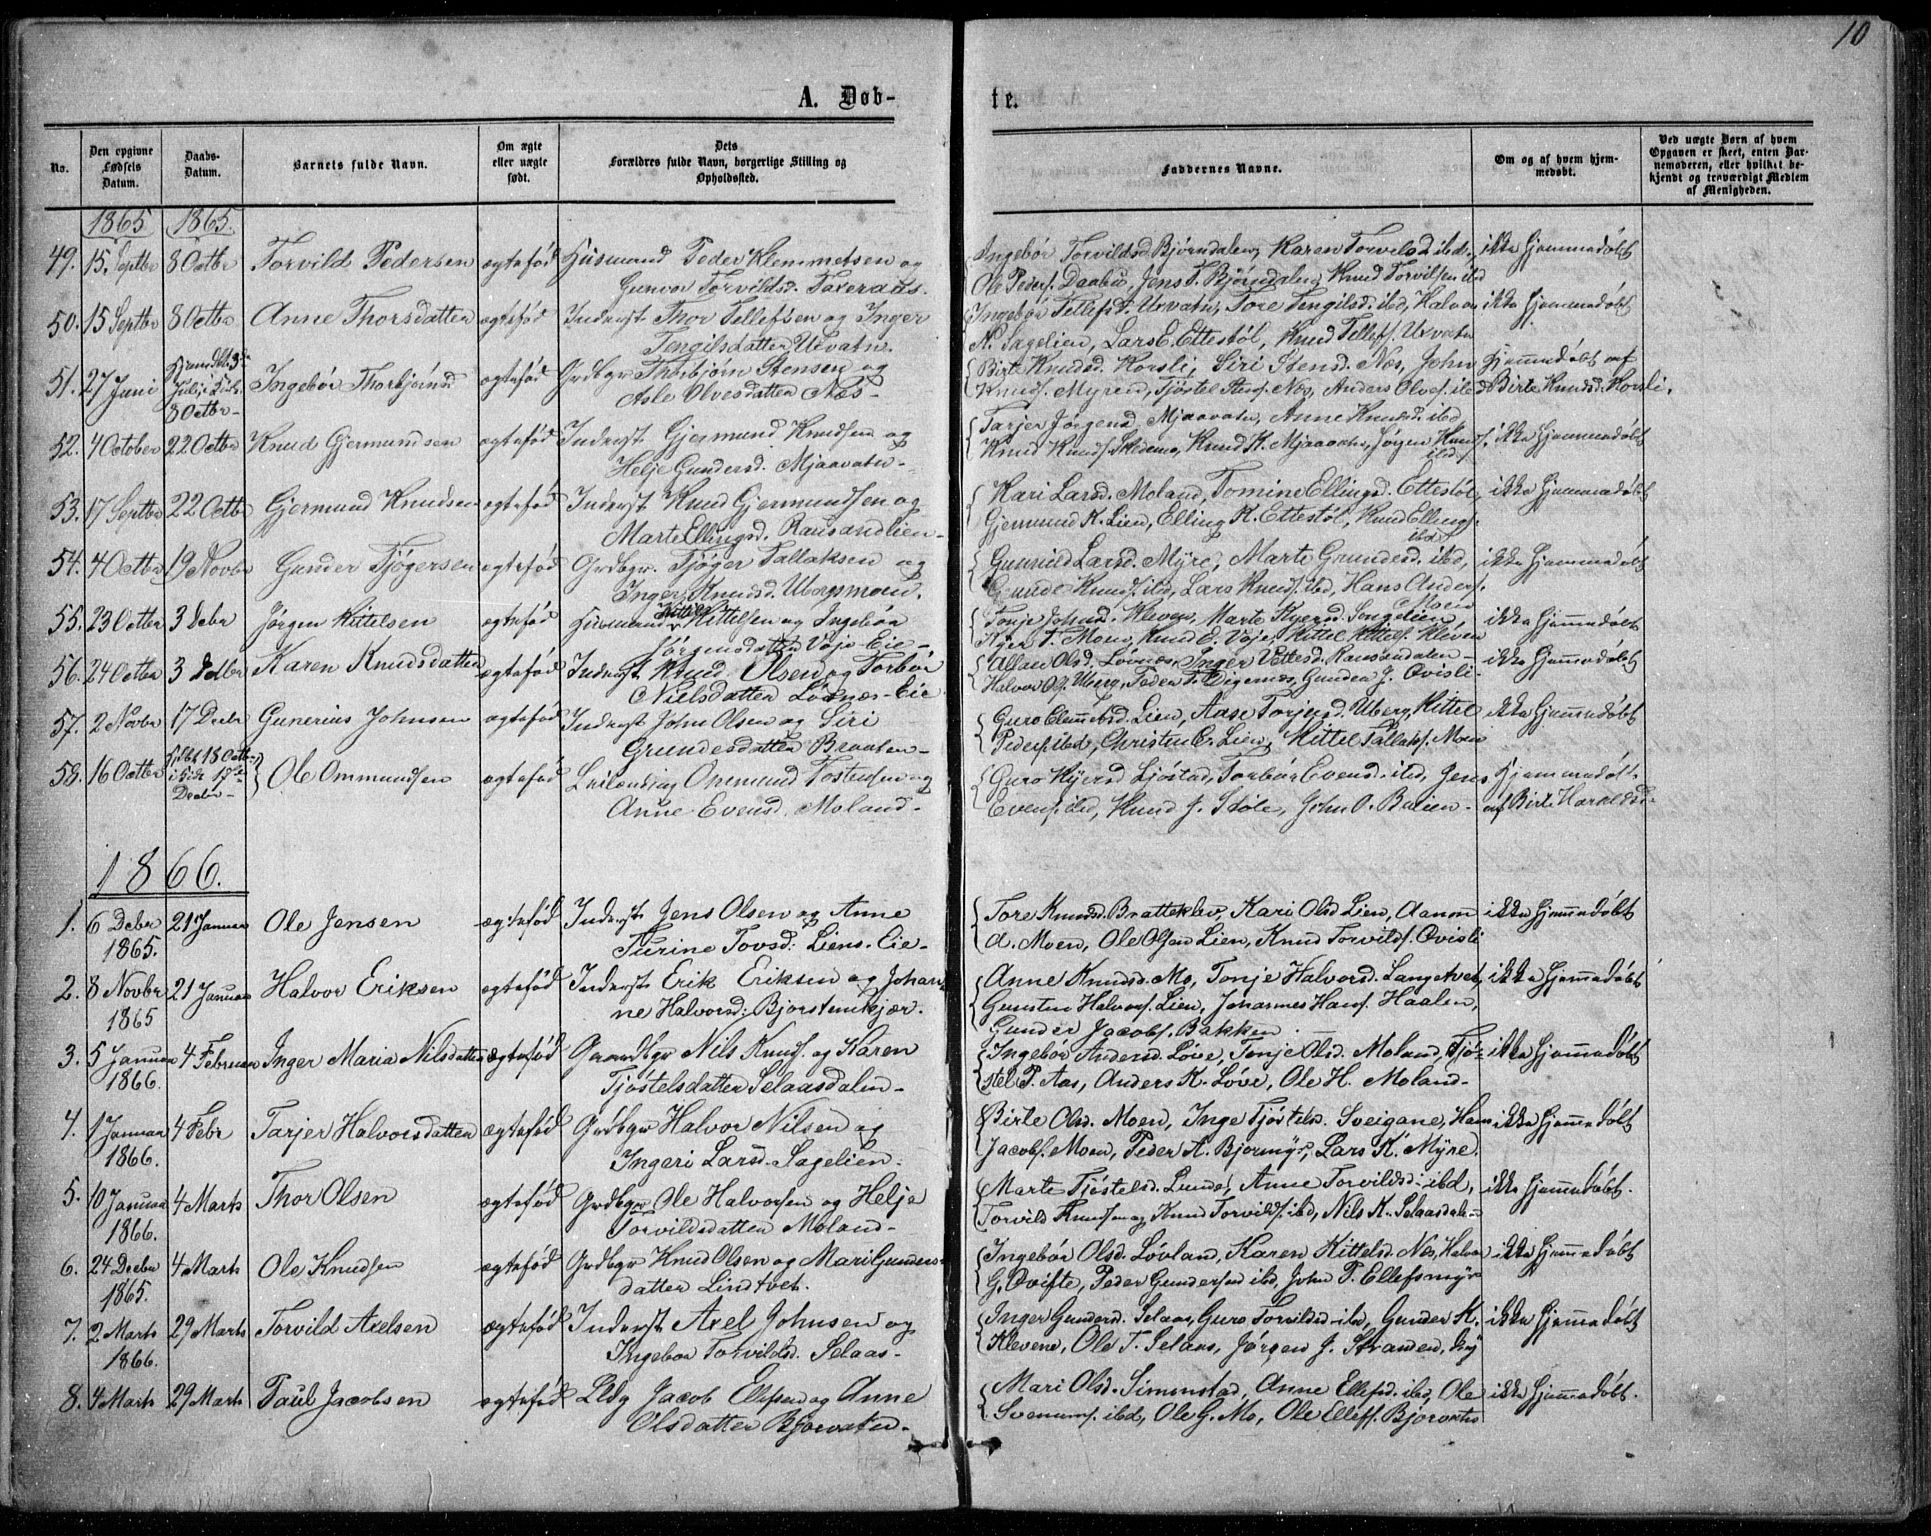 10
A. Døb-
te.
No.
Den opgivne Fødsels Datum.
Daabs-Datum.
Barnets fulde Navn.
Om ægte eller uægte født.
Dets Forældres fulde Navn, borgerlige Stilling og Opholdssted.
Faddernes Navne.
Om og af hvem hjemmedøbt.
Ved uægte Børn af hvem Opgaven er skeet, enten Barnemoderen, eller hvilket bekjendt og troværdigt Medlem af Menigheden.
1865 1865.
49. 15. Septbr 8 Octbr Torvild Pedersen ægtefød Husmand Peder Klemmetsen og
Gunvor Torvildsd. Taxeraas.
Ingebør Torvildsd Bjørndalen, Karen Torvilsd ibd., ikke hjemmedøbt
Ole Peders. Daabu, Jens T. Bjørndalen, Knud Torvilsen ibd
50. 15 Septbr 8 Octbr Anne Thorsdatter ægtefød Inderst Thor Tellefsen og Inger
Tengilsdatter Urvatn.
Ingebør Tellefsd. Urvatn, Tore Tengilsd. ibd, Halvor ikke hjemmedøbt
N. Sagelien, Lars E. Ettestøl, Knud Tellefs. Urvatn
51. 27 Juni Hjemdøbt 3die Julii, i Kirk. 8 Octbr- Ingebør Thorbjørnsd ægtefød Grdbgr Thorbjørn Stensen og
Asle Olvesdatter Næs-
Birte Knudsd. Horsli, Siri Stensd. Næs, John Hjemmedøbt af
Knuds. Myren, Tjøstel Stens. Næs, Anders Olves. ibd Birte Knudsd. Horsli.
52. 4 October 22 Octbr Knud Gjermundsen ægtefød Inderst Gjermund Knudsen og
Helje Gundersd. Mjaavatn-
Tarjer Jørgensd Mjaavatn, Anne Knudsd. ibd
Knud Knuds. Skeimo, Knud K. Mjaavatn, Jørgen Knuds. ibd ikke hjemmedøbt
53. 17 Septbr 22 Octbr Gjermund Knudsen ægtefød Inderst Knud Gjermundsen og
Marte Ellingsd. Rausandlien-
Kari Larsd. Moland, Tomine Ellingsd. Ettestøl, ikke hjemmedøbt
Gjermund K. Lien, Elling K. Ettestøl, Knud Ellings. ibd
54. 4 Octbr 19 Novbr Gunder Tjøgersen ægtefød Grdbgr. Tjøger Tallaksen og
Inger Knudsd. Ubergsmoen.
Gunnild Larsd. Myre, Marte Grundesd. ibd, ikke hjemmedøbt
Grunde Knuds. ibd, Lars Knuds. ibd, Hans Anders. Moen
55. 23 Octbr 3 Debr Jørgen Kittelsen ægtefød Husmand Kittel Kittelsen og Ingebør
Jørgensdatter Voje-Eie-
Tonje Johnsd. Kleven, Marte Kyersd. Songelien ikke hjemmedøbt
Kyer T. Moen, Knud O. Voje, Kittel Kittels. Kleven
56. 24 Octbr 3 Debr Karen Knudsdatter ægtefød Inderst Knud Olsen og Torbør
Nielsdatter Løvnæs-Eie
Allau Olsd. Løvnæs, Inger Vettesd. Rausandalen- ikke hjemmedøbt
Halvor O. Uberg, Peder T. Eigenæs, Gunder J. Qvisli-
57. 2 Novbr 17 Decbr Gunerius Johnsen ægtefød Inderst John Olsen og Siri
Grundesdatter Braaten-
Guro Clemmetsd. Lien, Aase Torjersd. Uberg, Kittel ikke hjemmedøbt
Peders. ibd, Christen C. Lien, Kittel Tallaks. Moen
58. 16 Octbr Hjdbt 18 Octbr i Kirk 17de Decbr- Ole Ommundsen ægtefød Leilænding Ommund Tostensen og
Anne Evensd. Moland-
Guro Kyersd Ljøstad, Torbør Evensd. ibd, Jens Hjemmedøbt
Evens. ibd, Knud J. Støle, John O. Balien- af Birte Haraldsd-
1866.
1. 6 Debr 1865. 21 Januar Ole Jensen ægtefød Inderst Jens Olsen og Anne
Turine Tovsd: Liens-Eie-
Tore Knudsd. Bratteklev, Kari Olsd Lien, Aanon ikke hjemmedøbt
A. Moen, Ole Olsen Lien, Knud Torvilds. Qvisli
2. 8 Novbr 1865 21 Januar Halvor Eriksen ægtefød Inderst Erik Eriksen og Johan-
ne Halvorsd: Bjorstemkjær.
Anne Knudsd. Mo, Tonje Halvorsd. Langetvet, ikke hjemmedøbt
Gunsten Halvors. Lien, Johannes Hans. Haalen,
Gunder Jacobs. Bakken
3. 5 Januar 1866. 4 Februar Inger Maria Nilsdatter ægtefød Gaardbgr Nils Knuds. og Karen
Tjøstelsdatter Selaasdalen-
Ingebør Andersd. Løve, Tonje Olsd. Moland, Tjø- ikke hjemmedøbt
stel P. Aas, Anders K. Løve, Ole H. Moland-
4. 1 Januar 1866. 4 Febr Tarjer Halvorsdatter ægtefød Grdbgr Halvor Nilsen og
Ingeri Larsd. Sagelien.
Birte Olsd. Moen, Inge Tjøstelsd. Sveigane, Hans ikke hjemmedøbt
Jacobs. Moen, Peder A. Bjormyr, Lars K. Myre.
5. 10 Januar 1866. 4 Marts Thor Olsen ægtefød Grdbgr Ole Halvorsen og Helje
Torvildsdatter Moland-
Marte Tjøstelsd. Lunde, Anne Torvildsd. ibd, ikke hjemmedøbt.
Torvild Knudsen og Knud Torvilds. ibd, Nils K. Selaasdale-
6. 24 Decbr 1865. 4 Marts Ole Knudsen ægtefød Grdbgr Knud Olsen og Mari Gunders-
datter Lindtveit.
Ingebør Olsd. Løvland, Karen Kittelsd. Næs, Halvor ikke hjemmedøbt
G. Qvifte, Peder Gundersen ibd, John P. Ellefsmyr
7. 2 Marts 1866. 29 Marts Torvild Axelsen ægtefød Inderst Axel Johnsen og
Ingebor Torvildsd. Selaas-
Inger Gundersd. Selaas, Guro Torvildsd ibd, Gunder K. ikke hjemmedøbt
Klevene, Ole T. Selaas, Jørgen J. Stranden,
8. 4 Marts 29 Marts Paul Jacobsen ægtefød Lldg Jacob Ellefsen og Anne
Olsdatter Bjørvatn-
Mari Olsd. Simonstad, Anne Ellefsd. ibd, Ole ikke hjemmedøbt.
Svenums. ibd, Ole G. Mo, Ole Ellefs. Bjørvatn